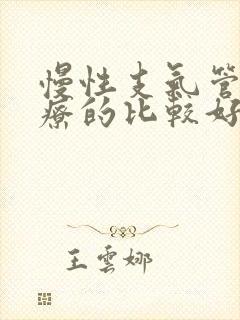 慢性支氣管
療的比較好
王雲娜